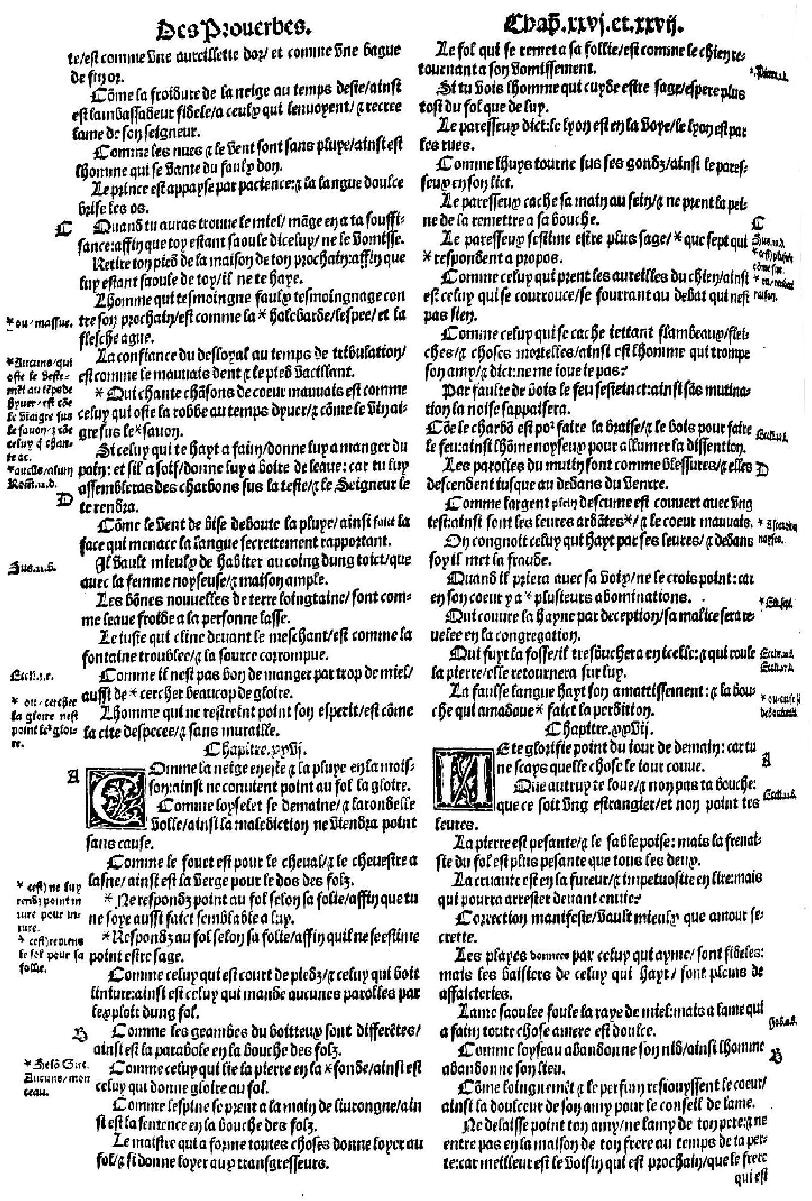 Des Prouerbes.
te/est comme vne aureillette dor/ et comme vne bague
de fin or.
Cõme la froidure de la neige au temps deste/ainsi
est lambassadeur fidele/a ceulx qui lenuoyent/⁊ recree
lame de son seigneur.
Comme les nues ⁊ le vent sont sans pluye/ainsi est
lhomme qui se vante du faulx don.
Le prince est appayse par pacience:⁊ la langue doulce
brise les os.
C
Quand tu auras trouue le miel/ mãge en a ta souffi-
sance:affin que toy estant saoule diceluy/ ne le vomisse.
Retire ton pied de la maison de ton prochain:affin que
luy estant saoule de toy/ il ne te haye.
Lhomme qui tesmoingne faulx tesmoingnage con
* ou/ massue.
tre son prochain/est comme la * halebarde/lespee/ et la
flesche ague.
La confiance du desloyal au temps de tribulation/
est comme le mauuais dent ⁊ le pied vacillant.
* Qui chante chãsons de coeur mauuais est comme
celuy qui oste la robbe au temps dyuer/⁊ cõme le vinai-
gre sus le * sauon.
Si celuy qui te hayt a faim/donne luy a manger du
pain: et sil a soif/donne luy a boire de leaue: car tu luy
assembleras des charbons sus la teste/⁊ le Seigneur le
te rendra.
D
Cõme le vent de bise deboute la pluye/ainsi faict la
face qui menace la langue secretement rapportant.
Il vault mieulx de habiter au coing dung toict/que
auec la femme noyseuse/⁊ maison ample.
Les bõnes nouuelles de terre loingtaine/ sont com-
me leaue froide a la personne lasse.
Le iuste qui cline deuant le meschant/est comme la
fontaine troublee/⁊ la source corrompue.
Comme il nest pas bon de manger par trop de miel/
aussi de * cercher beaucop de gloire.
* ou/ cercher
la gloire nest
point
Lhomme qui ne restreint point son esperit/est cõme
la cite despecee/⁊ sans muraille.
Chapitre.xxvi.
A
Comme la neige en este ⁊ la pluye en la mois-
son:ainsi ne conuient point au fol la gloire.
Comme loyselet se demaine/ ⁊ larondelle
volle/ainsi la malediction ne viendra point
sans cause.
Comme le fouet est pour le cheual/⁊ le cheuestre a
lasne/ainsi est la verge pour le dos des folz.
* Ne respondz point au fol selon sa folie/affin que tu
ne soye aussi faict semblable a luy.
* Respondz au fol selon sa folie/affin quil ne sestime
point estre sage.
Comme celuy qui est court de piedz/⁊ celuy qui boit
liniure:ainsi est celuy qui mande aucunes parolles par
lexploit dung fol.
B
Comme les geambes du boitteux sont differẽtes/
ainsi est la parabole en la bouche des folz.
Comme celuy qui lie la pierre en la * fonde/ainsi est
celuy qui donne gloire au fol.
Comme lespine se prent a la main de liurongne/ain
si est la sentence en la bouche des folz.
Le maistre qui a forme toutes choses donne loyer au
fol/⁊ si donne loyer aux transgresseurs.
Chap.xxvj.et.xxvij.
Le fol qui se remet a sa follie/est comme le chien re-
tournant a son vomissement.
Si tu vois lhomme qui cuyde estre sage/espere plus
tost du fol que de luy.
Le paresseux dict:le lyon est en la voye/le lyon est par
les rues.
Comme lhuys tourne sus ses gondz/ainsi le pares-
seux en son lict.
Le paresseux cache sa main au sein/⁊ ne prent la pei-
ne de la remettre a sa bouche.
C
Le paresseux sestime estre plus sage/ * que sept qui
* respondent a propos.
Comme celuy qui prent les aureilles du chien/ainsi
est celuy qui se courrouce/se fourrant au debat qui nest
pas sien.
Comme celuy qui se cache iettant flambeaux/fles-
ches/⁊ choses mortelles/ainsi est lhomme qui trompe
son amy/⁊ dict:ne me ioue ie pas?
Par faulte de bois le feu sesteinct:ainsi sãs mutina-
tion la noise sappaisera.
Cõe le charbõ est por faire la braise/⁊ le bois pour faire
le feu:ainsi lhõme noyseux pour allumer la dissention.
D
Les parolles du mutin sont comme blessures/⁊ elles
descendent iusque au dedans du ventre.
Comme largent plain descume est couuert auec vng
test:ainsi sont les leures ardãtes*/⁊ le coeur mauuais.
On congnoit celuy qui hayt par ses leures/⁊ dedans
soy il met la fraude.
Quand il priera auec sa voix/ne le crois point: car
en son coeur y a * plusieurs abominations.
Qui couure la hayne par deception/sa malice sera re-
uelee en la congregation.
Qui fuyt la fosse/il tresbuchera en icelle:⁊ qui roule
la pierre/elle retournera sur luy.
La faulse langue hayt son amattissement: ⁊ la bou-
che qui amadoue * faict la perdition.
Chapitre.xxvij.
A
NE te glorifie point du iour de demain: car tu
ne scays quelle chose le iour couue.
Que autruy te loue/⁊ non pas ta bouche:
que ce soit vng estrangier/et non point tes
leures.
La pierre est pesante/⁊ le sable poise: mais la frenai-
sie du fol est plus pesante que tous les deux.
La cruaute est en la fureur/⁊ impetuosite en lire:mais
qui pourra arrester deuant enuie?
Correction manifeste/vault mieulx que amour se-
crette.
Les playes donnees par celuy qui ayme/ sont fideles:
mais les baisiers de celuy qui hayt/ sont pleins de
affaicteries.
Lame saoulee foule la raye de miel:mais a lame qui
a faim toute chose amere est doulce.
B
Comme loyseau abandonne son nid/ainsi lhomme
abandonne son lieu.
Cõme loinguemẽt ⁊ le perfum resiouyssent le coeur/
ainsi la doulceur de son amy pour le conseil de lame.
Ne delaisse point ton amy/ne lamy de ton pere:⁊ ne
entre pas en la maison de ton frere au temps de ta per-
te:car meilleur est le voisin qui est prochain/que le frere
qui est